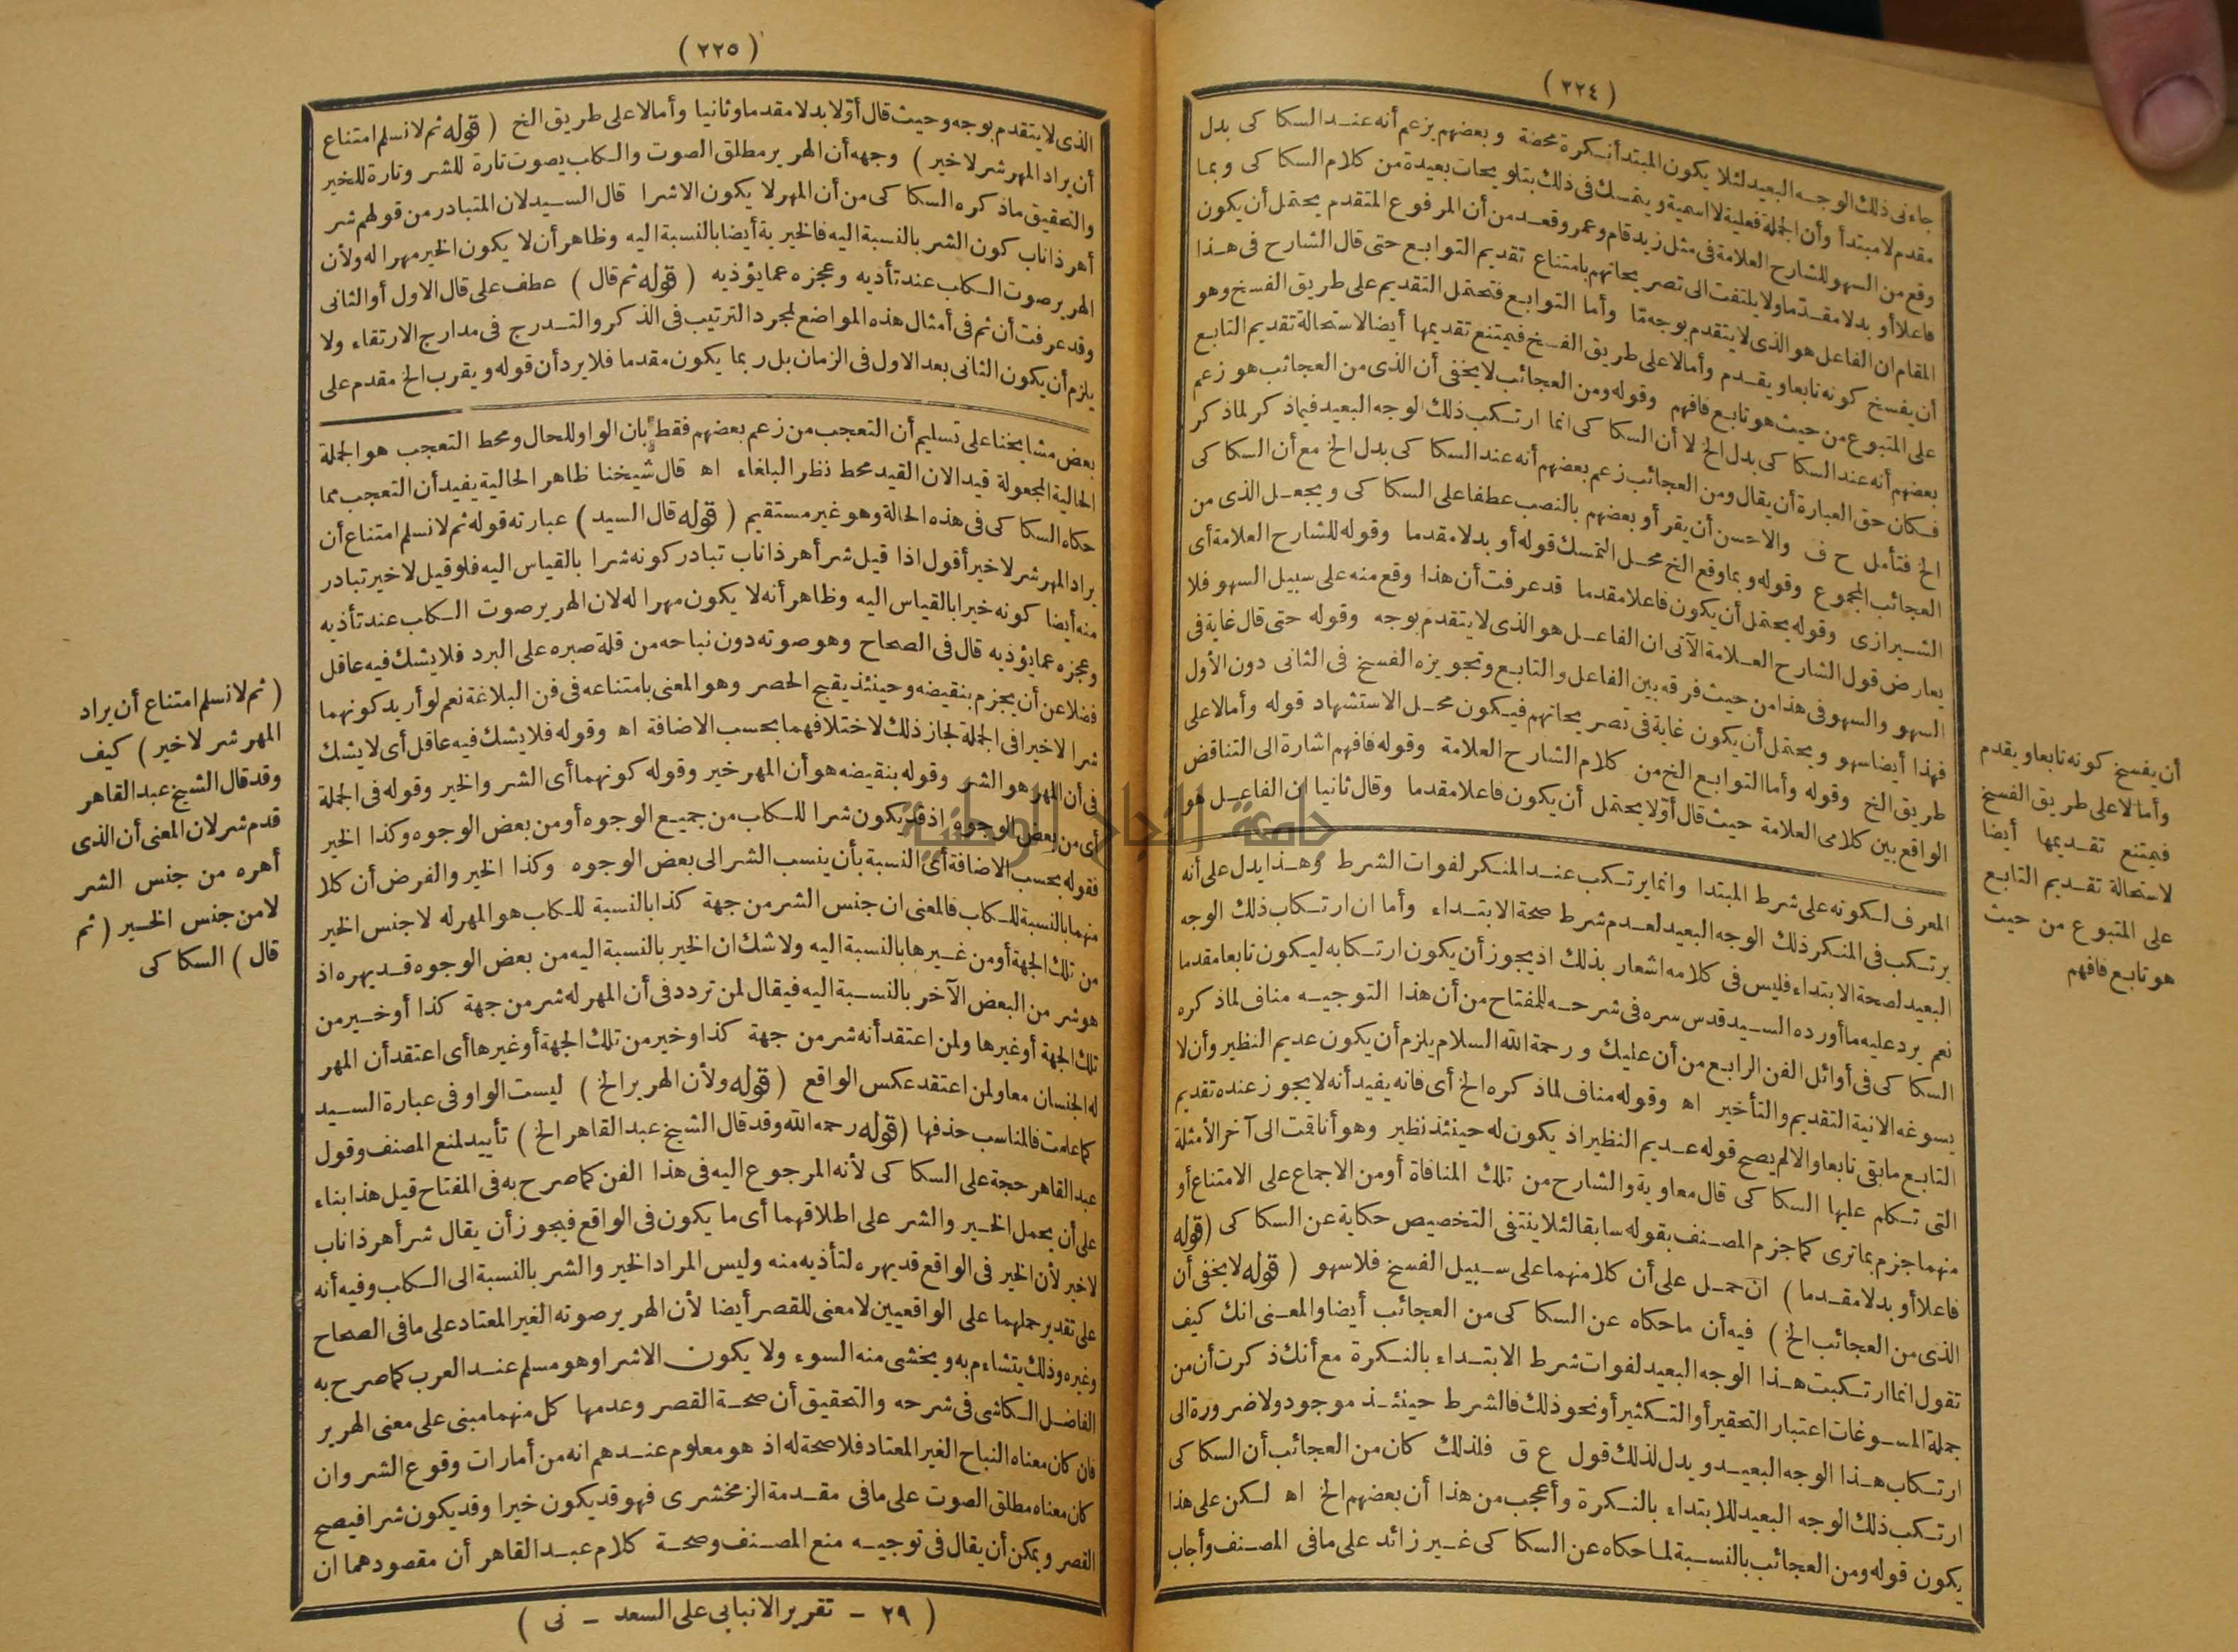 ( ٢٢٤ )
جاء فى ذلك الوجه البعيد لئلا يكون المبتدأ نكرة محضة وبعضهم يزعم أنه عند السكاكى بدل
مقدم لا مبتدأ وأن الجملة فعلية لا اسمية ويتمسك فى ذلك بتلويحات بعيدة من كلام السكاكى وبما
وقع من السهو للشارح العلامة فى مثل زيد قام وعمرو قعد من أن المرفوع المتقدم يحتمل أن يكون
فاعلا أو بدلا مقدّما ولا يلتفت الى تصريحاتهم بامتناع تقديم التوابع حتى قال الشارح فى هذا
المقام ان الفاعل هو الذى لا يتقدم بوجه مّا وأما التوابع فتحتمل التقديم على طريق الفسخ وهو
أن يفسخ كونه تابعا ويقدم وأما لا على طريق الفسخ فيمتنع تقديمها أيضا لاستحالة تقديم التابع
على المتبوع من حيث هو تابع فافهم وقوله ومن العجائب لا يخفى أن الذى من العجائب هو زعم
بعضهم أنه عند السكاكى بدل الخ لا أن السكاكى انما ارتكب ذلك لوجه البعيد فيما ذكر لما ذكر
فكان حق العبارة أن يقال ومن العجائب زعم بعضهم أنه عند السكاكى بدل الخ مع أن السكاكى
الخ فتأمل ح ف والاحسن أن يقرأ وبعضهم بالنصب عطفا على السكاكى ويجعل الذى من
العجائب المجموع وقوله وبما وقع الخ محل التمسك قوله أو بدلا مقدما وقوله للشارح العلامة أى
الشيرازى وقوله يحتمل أن يكون فاعلا مقدما قد عرفت أن هذا وقع منه على سبيل السهو فلا
يعارض قول الشارح العلامة الآتى ان الفاعل هو الذى لا يتقدم بوجه وقوله حتى قال غاية فى
السهو والسهو فى هذا من حيث فرقه بين الفاعل والتابع وتجويزه الفسخ فى الثانى دون الأول
فهذا أيضا سهو ويحتمل أن يكون غاية فى تصريحاتهم فيكون محل الاستشهاد قوله وأما لا على
طريق الخ وقوله وأما التوابع الخ من كلام الشارح العلامة وقوله فافهم اشارة الى التناقض
الواقع بين كلامى العلامة حيث قال أوّلا يحتمل أن يكون فاعلا مقدما وقال ثانيا ان الفاعل هو
المعرف لكونه على شرط المبتدا وانما يرتكب عند المنكر لفوات الشرط وهذا يدل على أنه
يرتكب فى المنكر ذلك الوجه البعيد لعدم شرط صحة الابتداء وأما ان ارتكاب ذلك الوجه
البعيد لصحة الابتداء فليس فى كلامه اشعار بذلك اذ يجوز أن يكون ارتكابه ليكون تابعا مقدما
نعم يرد عليه ما أورده السيد قدس سره فى شرحه للمفتاح من أن هذا التوجيه مناف لما ذكره
السكاكى فى أوائل الفن الرابع من أن عليك ورحمة الله السلام يلزم أن يكون عديم النظير وأن لا
يسوغه الا نية التقديم والتأخير اه وقوله مناف لما ذكره الخ أى فانه يفيد أنه لا يجوز عنده تقديم
التابع ما بقى تابعا والا لم يصح قوله عديم النظير اذ يكون له حينئذ نظير وهو أنا قمت الى آخر الأمثلة
التى تكلم عليها السكاكى قال معاوية والشارح من تلك المنافاة أو من الاجماع على الامتناع أو
منهما جزم بما ترى كما جزم المصنف بقوله سابقا لئلا ينتفى التخصيص حكاية عن السكاكى (قوله
فاعلا أو بدلا مقدما ) ان حمل على أن كلا منهما على سبيل الفسخ فلا سهو ( قوله لا يخفى أن
الذى من العجائب الخ ) فيه أن ما حكاه عن السكاكى من العجائب أيضا والمعنى انك كيف
تقول انما ارتكبت هذا الوجه البعيد لفوات شرط الابتداء بالنكرة مع أنك ذكرت أن من
جملة المسوغات اعتبار التحقير أو التكثير أو نحو ذلك فالشرط حينئذ موجود ولا ضرورة الى
ارتكاب هذا الوجه البعيد ويدل لذلك قول ع ق فلذلك كان من العجائب أن السكاكى
ارتكب ذلك الوجه البعيد للابتداء بالنكرة وأعجب من هذا أن بعضهم الخ اه لكن على هذا
يكون قوله ومن العجائب بالنسبة لما حكاه عن السكاكى غير زائد على ما فى المصنف وأجاب
أن يفسخ كونه تابعا ويقدم
وأما لا على طريق الفسخ
فيمتنع تقديمها أيضا
لاستحالة تقديم التابع
على المتبوع من حيث
هو تابع فافهم
( ٢٢٥ )
الذى لا يتقدم بوجه وحيث قال أوّلا بدلا مقدما وثانيا وأما لا على طريق الخ ( قوله ثم لا نسلم امتناع
أن يراد المهر شر لا خير ) وجهه أن الهرير مطلق الصوت والكلب يصوت تارة للشر وتارة للخير
والتحقيق ما ذكره السكاكى من أن المهر لا يكون الا شرا قال السيد لان المتبادر من قولهم شر
أهر ذا ناب كون الشر بالنسبة اليه فالخيرية أيضا بالنسبة اليه وظاهر أن لا يكون الخير مهرا له ولأن
الهرير صوت الكلب عند تأذيه وعجزه عما يؤذيه ( قوله ثم قال ) عطف على قال الاول أو الثانى
وقد عرفت أن ثم فى أمثال هذه المواضع لمجرد الترتيب فى الذكر والتدرج فى مدارج الارتقاء ولا
يلزم أن يكون الثانى بعد الاول فى الزمان بل ربما يكون مقدما فلا يرد أن قوله ويقرب الخ مقدم على
بعض مشايخنا على تسليم أن التعجب من زعم بعضهم فقط بان الواو للحال ومحط التعجب هو الجملة
الحالية المجعولة قيدا لان القيد محط نظر البلغاء اه قال شيخنا ظاهر الحالية يفيد أن التعجب مما
حكاه السكاكى فى هذه الحالة وهو غير مستقيم ( قوله قال السيد ) عبارته قوله ثم لا نسلم امتناع أن
يراد المهر شر لا خير أقول اذا قيل شر أهر ذا ناب تبادر كونه شرا بالقياس اليه فلو قيل لا خير تبادر
منه أيضا كونه خيرا بالقياس اليه وظاهر أنه لا يكون مهرا له لان الهرير صوت الكلب عند تأذيه
وعجزه عما يؤذيه قال فى الصحاح وهو صوته دون نباحه من قلة صبره على البرد فلا يشك فيه عاقل
فضلا عن أن يجزم بنقيضه وحينئذ يقبح الحصر وهو المعنى بامتناعه فى فن البلاغة نعم لو أريد كونهما
شرا لا خيرا فى الجملة لجاز ذلك لاختلافهما بحسب الاضافة اه وقوله فلا يشك فيه عاقل أى لا يشك
فى أن المهر هو الشر وقوله بنقيضه هو أن المهر خير وقوله كونهما أى الشر والخير وقوله فى الجملة
أى من بعض الوجوه اذ قد يكون شرا للكلب من جميع الوجوه أو من بعض الوجوه وكذا الخير
فقوله بحسب الاضافة أى النسبة بأن ينسب الشر الى بعض الوجوه وكذا الخير والفرض أن كلا
منهما بالنسبة للكلب فالمعنى ان جنس الشر من جهة كذا بالنسبة للكلب هو المهر له لا جنس الخير
من تلك الجهة أو من غيرها بالنسبة اليه ولا شك ان الخير بالنسبة اليه من بعض الوجوه قد يهره اذ
هو شر من البعض الآخر بالنسبة اليه فيقال لمن تردد فى أن المهر له شر من جهة كذا أو خير من
تلك الجهة أو غيرها ولمن اعتقد أنه شر من جهة كذا وخير من تلك الجهة أو غيرها أى اعتقد أن المهر
له الجنسان معا ولمن اعتقد عكس الواقع ( قوله ولأن الهرير الخ ) ليست الواو فى عبارة السيد
كما علمت فالمناسب حذفها (قوله رحمه الله وقد قال الشيخ عبد القاهر الخ ) تأييد لمنع المصنف وقول
عبد القاهر حجة على السكاكى لأنه المرجوع اليه فى هذا الفن كما صرح به فى المفتاح قيل هذا بناء
على أن يحمل الخير والشر على اطلاقهما أى ما يكون فى الواقع فيجوز أن يقال شر أهر ذا ناب
لا خير لأن الخير فى الواقع قد يهره لتأذيه منه وليس المراد الخير والشر بالنسبة الى الكلب وفيه أنه
على تقدير حملهما على الواقعيين لا معنى للقصر أيضا لأن الهرير صوته الغير المعتاد على ما فى الصحاح
وغيره وذلك يتشاءم به ويخشى منه السوء ولا يكون الا شرا وهو مسلم عند العرب كما صرح به
الفاضل الكاشى فى شرحه والتحقيق أن صحة القصر وعدمها كل منهما مبنى على معنى الهرير
فان كان معناه النباح الغير المعتاد فلا صحة له اذ هو معلوم عندهم انه من أمارات وقوع الشر وان
كان معناه مطلق الصوت على ما فى مقدمة الزمخشرى فهو قد يكون خيرا وقد يكون شرا فيصح
القصر ويمكن أن يقال فى توجيه منع المصنف وصحة كلام عبد القاهر أن مقصودهما ان
( ثم لا نسلم امتناع أن يراد
المهر شر لا خير ) كيف
وقد قال الشيخ عبد القاهر
قدم شر لان المعنى أن الذى
أهره من جنس الشر
لا من جنس الخير ( ثم
قال ) السكاكى
( ٢٩ - تقرير الانبابى على السعد - نى )
جامعة النجاح الوطنية